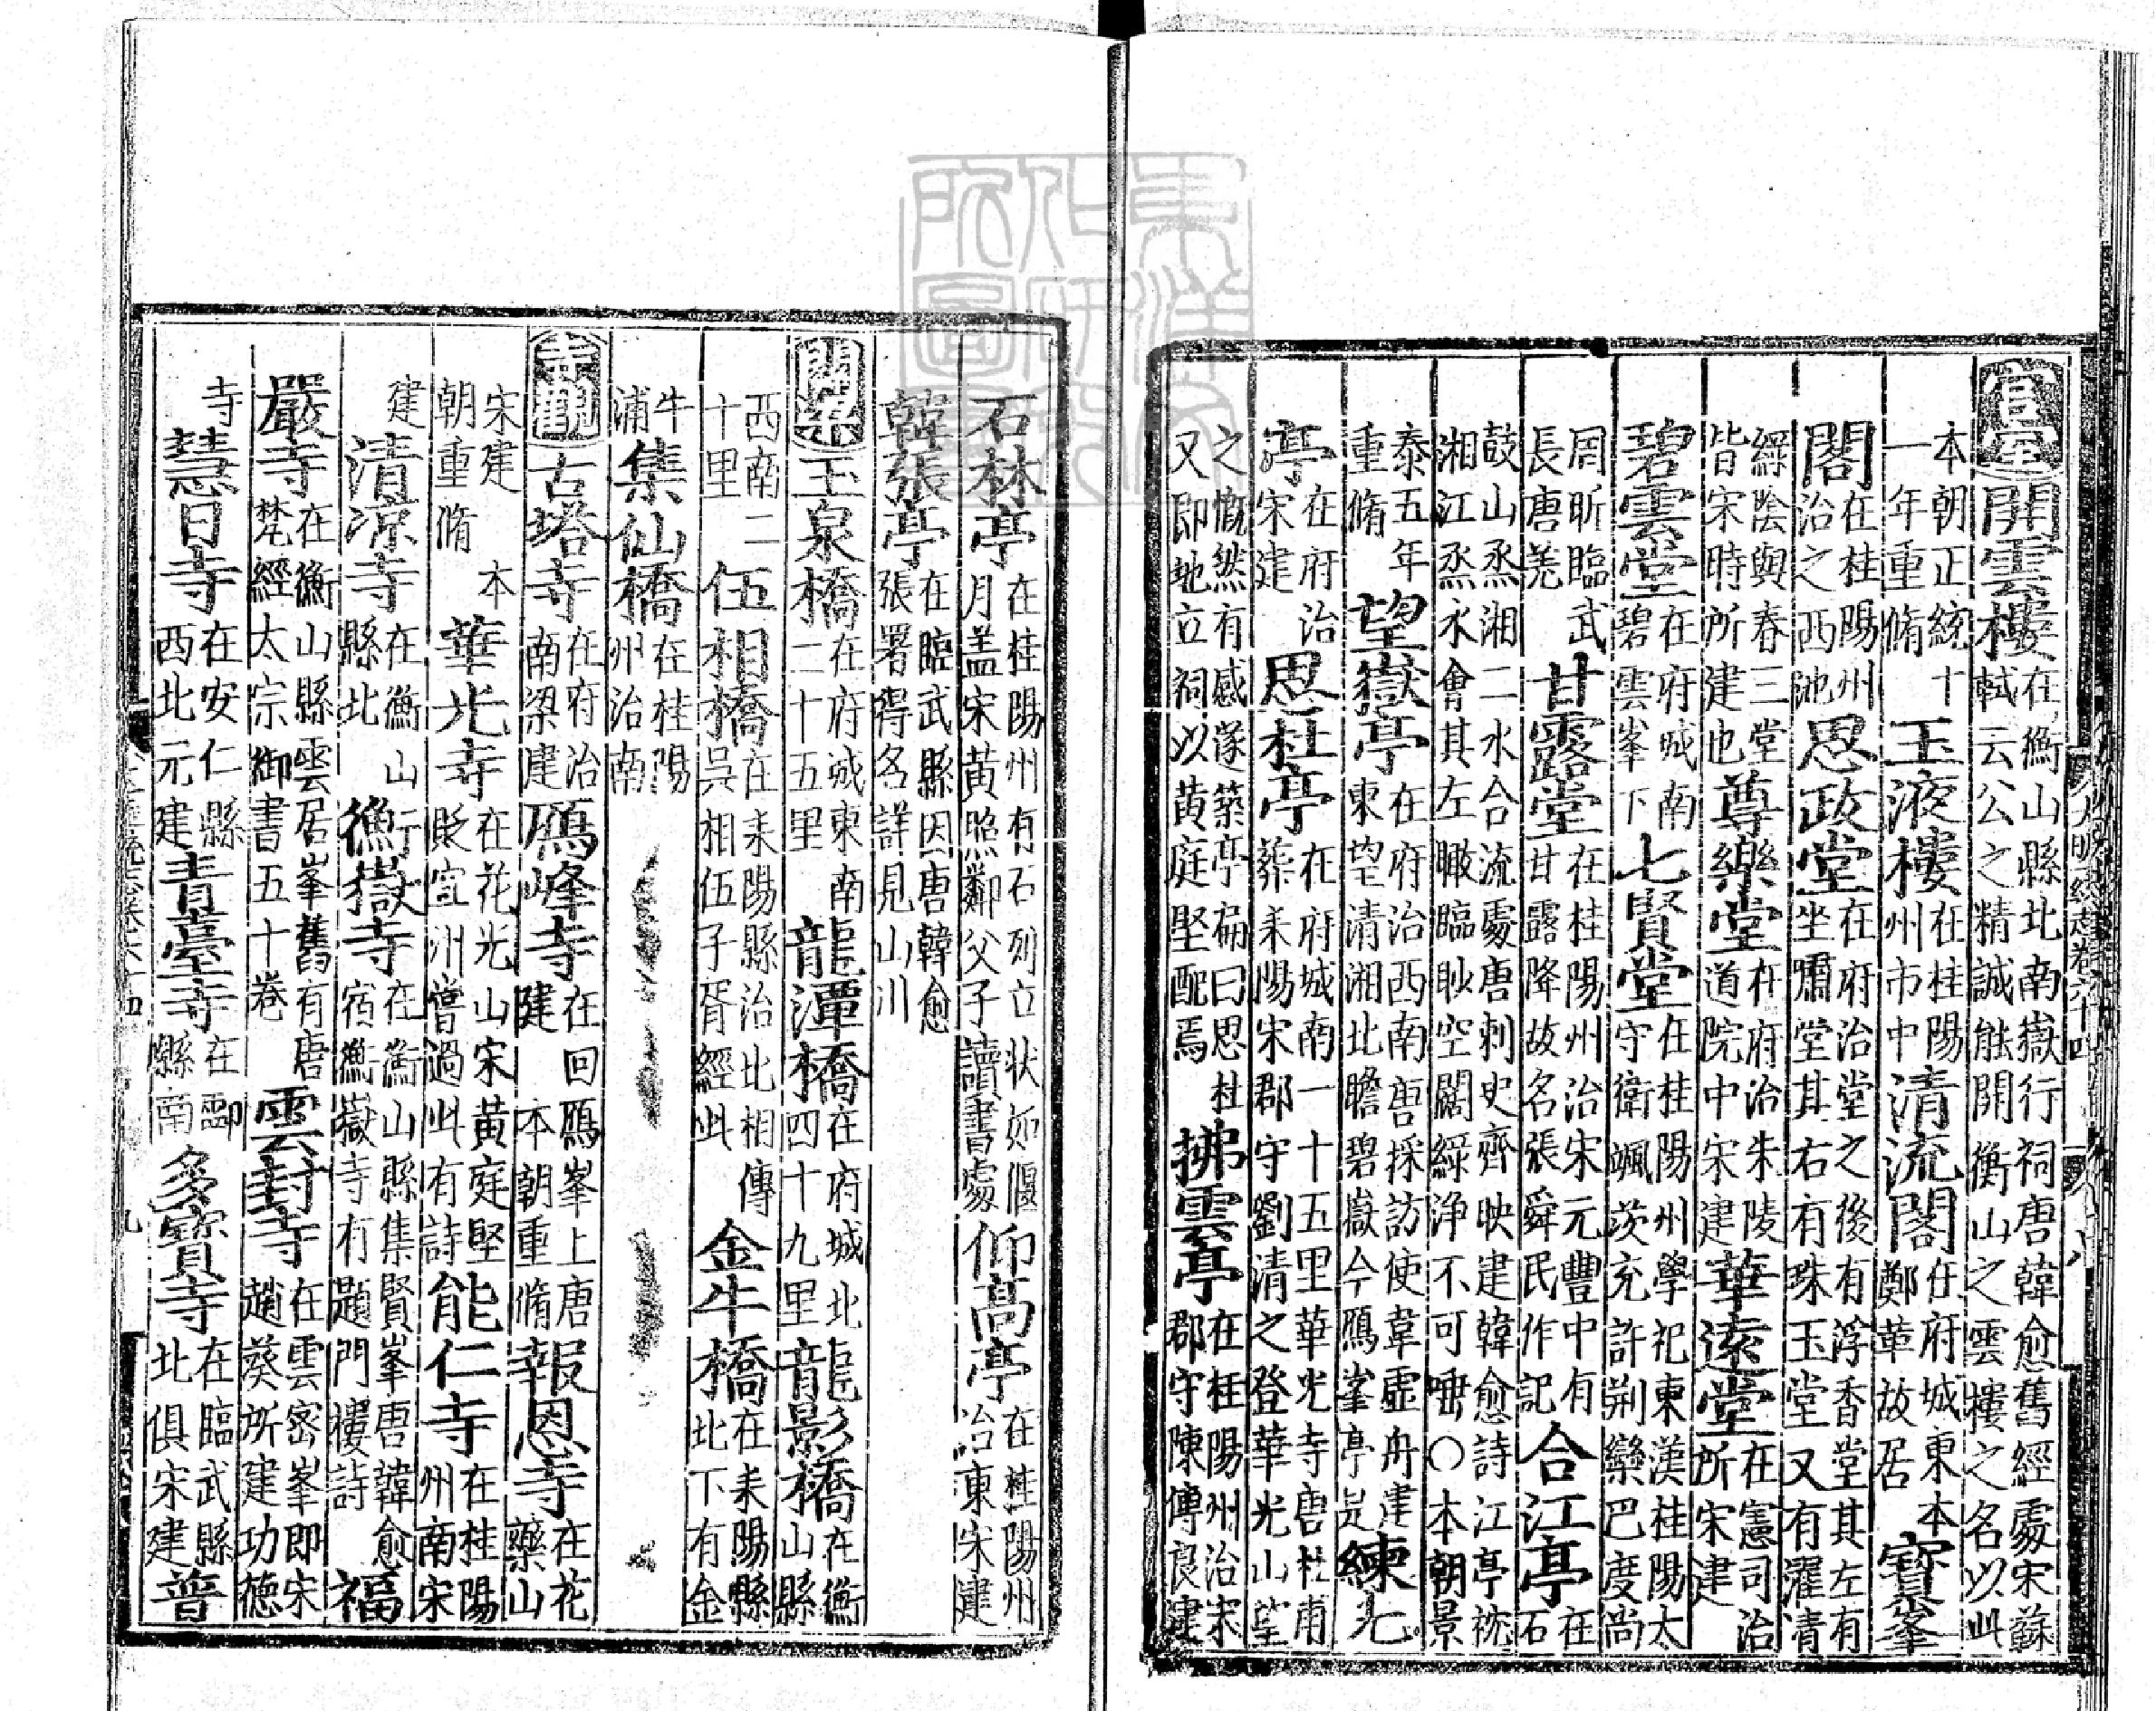 宮室 開雲樓在衡山縣北南嶽行祠唐韓愈舊經處宋蘇軾云公之精誠能開衡山之雲樓之名以此
本朝正統十一年重脩 玉液樓在桂陽州市中 清流閣在府城東本鄭革故居 寶峯
閣在桂陽州治之西池 思政堂在府治堂之後有浮香堂其左有坐嘯堂其右有珠玉堂又有濯清
綠陰與春三堂皆宋時所建也 尊樂堂在府治朱陵道院中宋建 華遠堂在憲司治所宋建
碧雲堂在府城南碧雲峯下 七賢堂在桂陽州學祀東漢桂陽太守衛颯茨充許荆欒巴度尚
周昕臨武長唐羌 甘露堂在桂陽州治宋元豐中有甘露降故名張舜民作記 合江亭在石
鼓山烝湘二水合流處唐刺史齊映建韓愈詩江亭枕湘江烝水會其左瞰臨眇空闊綠淨不可唾○本朝景
泰五年重脩 望嶽亭在府治西南唐採訪使韋虛舟建東望清湘北瞻碧嶽今鴈峯亭是 練光
亭在府治宋建 思杜亭在府城南一十五里華光寺唐杜甫葬耒陽宋郡守劉清之登華光山望
之慨然有感遂築亭扁曰思杜又卽地立祠以黄庭堅配焉 拂雲亭在桂陽州治宋郡守陳傅良建
大明一統志卷六十四 八
石林亭在桂陽州有石列立状如偃月盖宋黄照鄰父子讀書處 仰高亭在桂陽州治東宋建
韓張亭在臨武縣因唐韓愈張署得名詳見山川
關梁 玉泉橋在府城東南二十五里 龍潭橋在府城北四十九里 龍影橋在衡山縣
西南二十里 伍相橋在耒陽縣治北相傳吳相伍子胥經此 金牛橋在耒陽縣北下有金
牛浦 集仙橋在桂陽州治南
寺觀 古塔寺在府治南梁建 鴈峰寺在回鴈峯上唐建 本朝重脩 報恩寺在花藥山
宋建 本朝重脩 華光寺在花光山宋黄庭堅貶宜州嘗過此有詩 能仁寺在桂陽州南宋
建 清凉寺在衡山縣北 衡嶽寺在衡山縣集賢峯唐韓愈宿衡嶽寺有題門樓詩 福
嚴寺在衡山縣雲居峯舊有唐太宗御書梵經五十卷 雲封寺在雲密峯即宋趙葵所建功德
寺 慧日寺在安仁縣西北元建 青臺寺在酃縣南 多寶寺在臨武縣北俱宋建 普
九